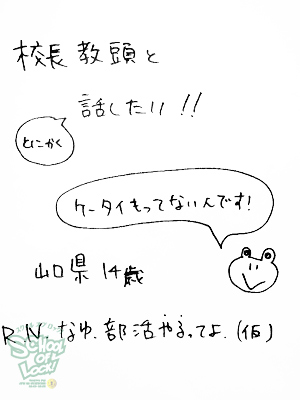 校長教頭と
話したい!!
とにかく
ケータイもってないんです!
山口県 14歳
R.N. なゆ.部活やるってよ.(仮)
SCHOOL OF LOCK!